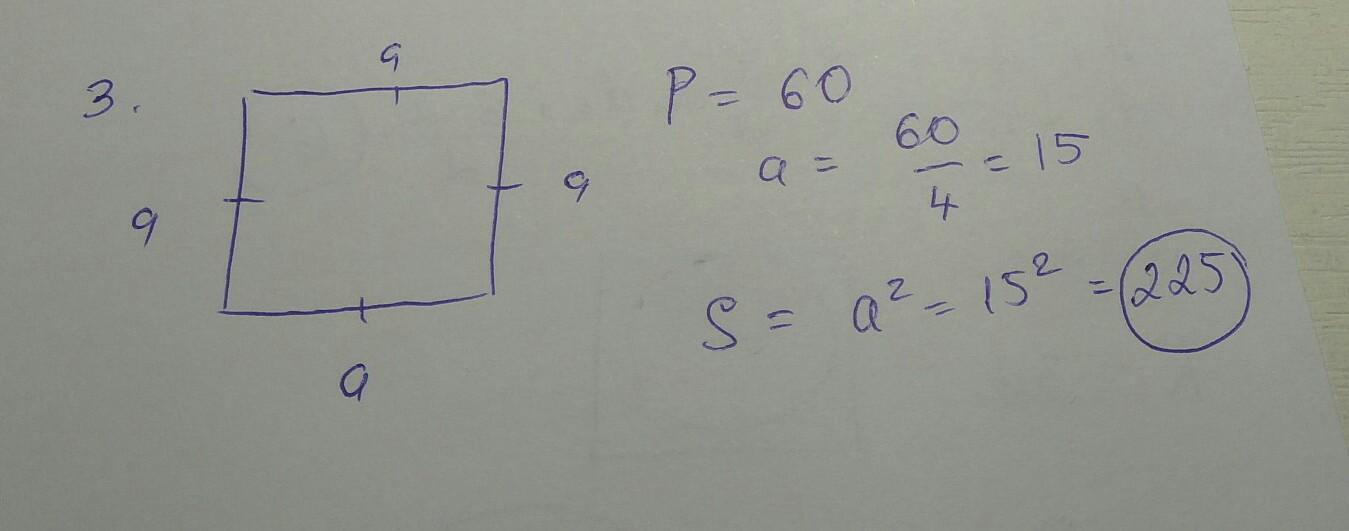 3.
a
a
a
a
P = 60
a = 60/4 = 15
S = a² = 15² = 225